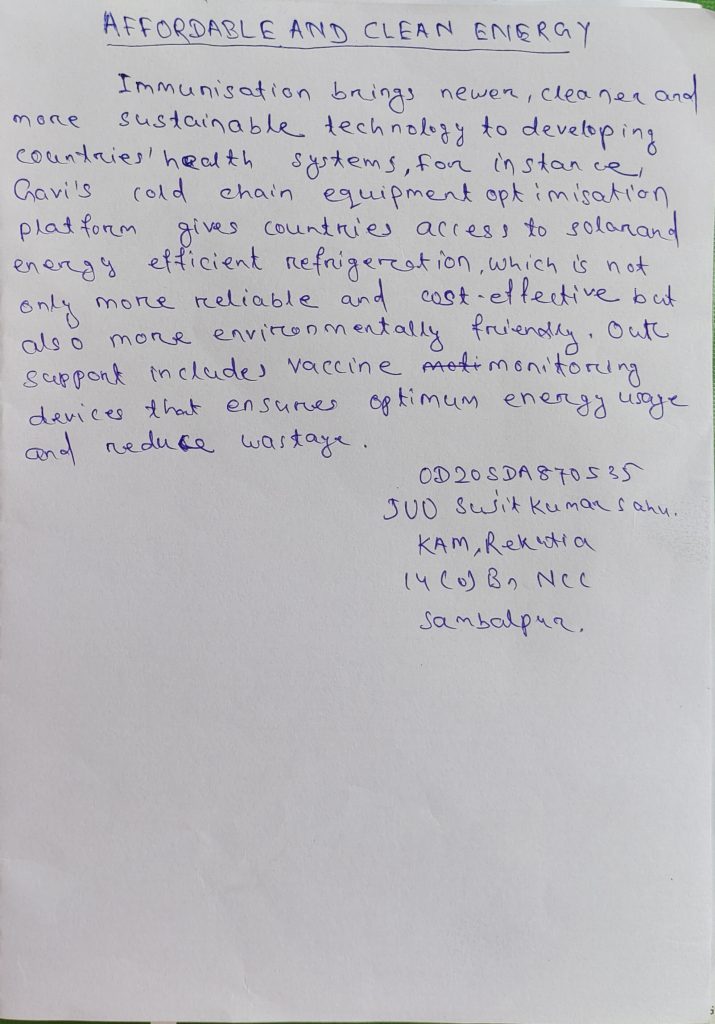 AFFORDABLE AND CLEAN ENERGY
Immunisation brings newer, cleaner and
more sustainable technology to developing
countries' health systems, for instance,
Gavi's cold chain equipment optimisation
platform gives countries access to solar and
energy efficient refrigeration, which is not
only more reliable and cost-effective but
also more environmentally friendly. Our
support includes vaccine monitoring
devices that ensures optimum energy usage
and reduce wastage.
OD20SDA870535
SUO Sujit Kumar Sahu.
KAM, Rekutia
14 (O) Bn NCC
Sambalpur.